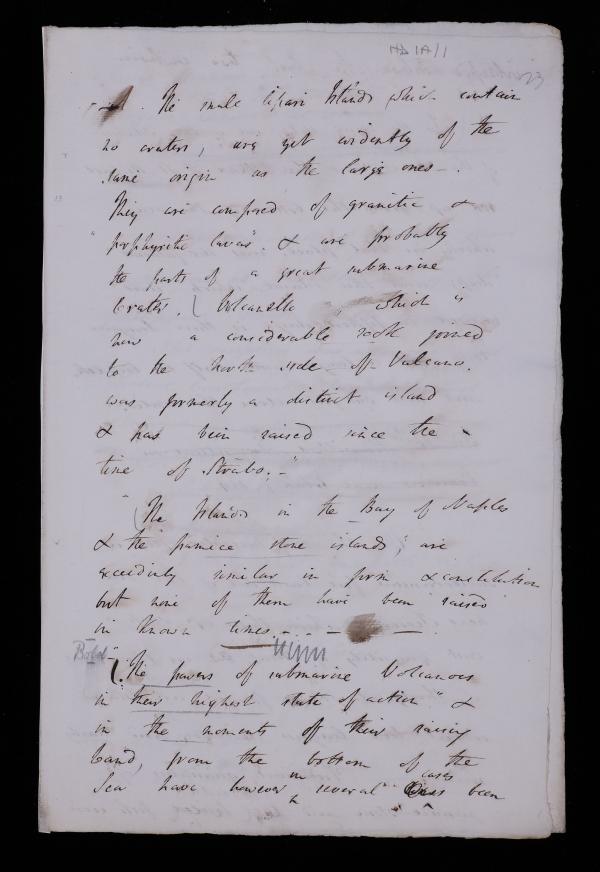 The small Lipari Islands which contain
no craters, are yet evidently of the
same origin as the large ones -.
They are composed of granitic &
"porphyritic lavas". & are probably
the parts of a great submarine
Crater. Volcanello, which is
now a considerable rock joined
to the north side of Vulcano.
was formerly a distinct island
& has been raised since the
time of Strabo. -"
"The Islands in the Bay of Naples
& the pumice stone islands", are
exceedinly similar in form & constitution
but none of them have been raised
in known times - . - -
Bold
"The powers of submarine Volcanoes
in their highest state of action" &
in the moments of their raising
land, from the bottom of the
Sea have however in several cases been